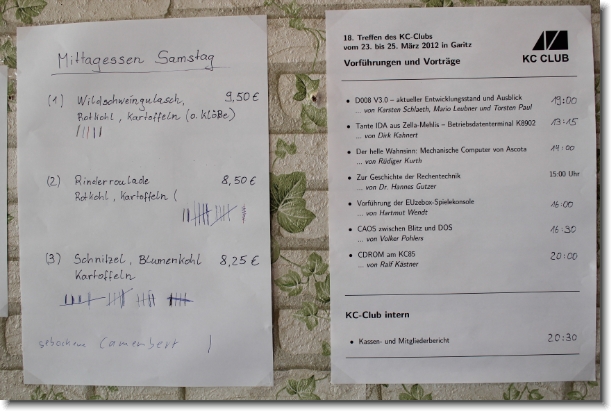 Mittagessen Samstag
(1) Wildschweingulasch, 9,50 €
Rotkohl, Kartoffeln (o. Klöße)
(2) Rinderroulade 8,50 €
Rotkohl, Kartoffeln (
(3) Schnitzel, Blumenkohl 8,25 €
Kartoffeln
gebackene Camenbert
18. Treffen des KC-Clubs
vom 23. bis 25. März 2012 in Garitz
Vorführungen und Vorträge
KC CLUB
• D008 V3.0 – aktueller Entwicklungsstand und Ausblick 19:00
... von Karsten Schlaeth, Mario Leubner und Torsten Paul
• Tante IDA aus Zella-Mehlis – Betriebsdatenterminal K8902 13:15
... von Dirk Kahnert
• Der helle Wahnsinn: Mechanische Computer von Ascota 14:00
... von Rüdiger Kurth
• Zur Geschichte der Rechentechnik 15:00 Uhr
... von Dr. Hannes Gutzer
• Vorführung der EUzebox-Spielekonsole 16:00
... von Hartmut Wendt
• CAOS zwischen Blitz und DOS 16:30
... von Volker Pohlers
• CDROM am KC85 20:00
... von Ralf Kästner
KC-Club intern
• Kassen- und Mitgliederbericht 20:30